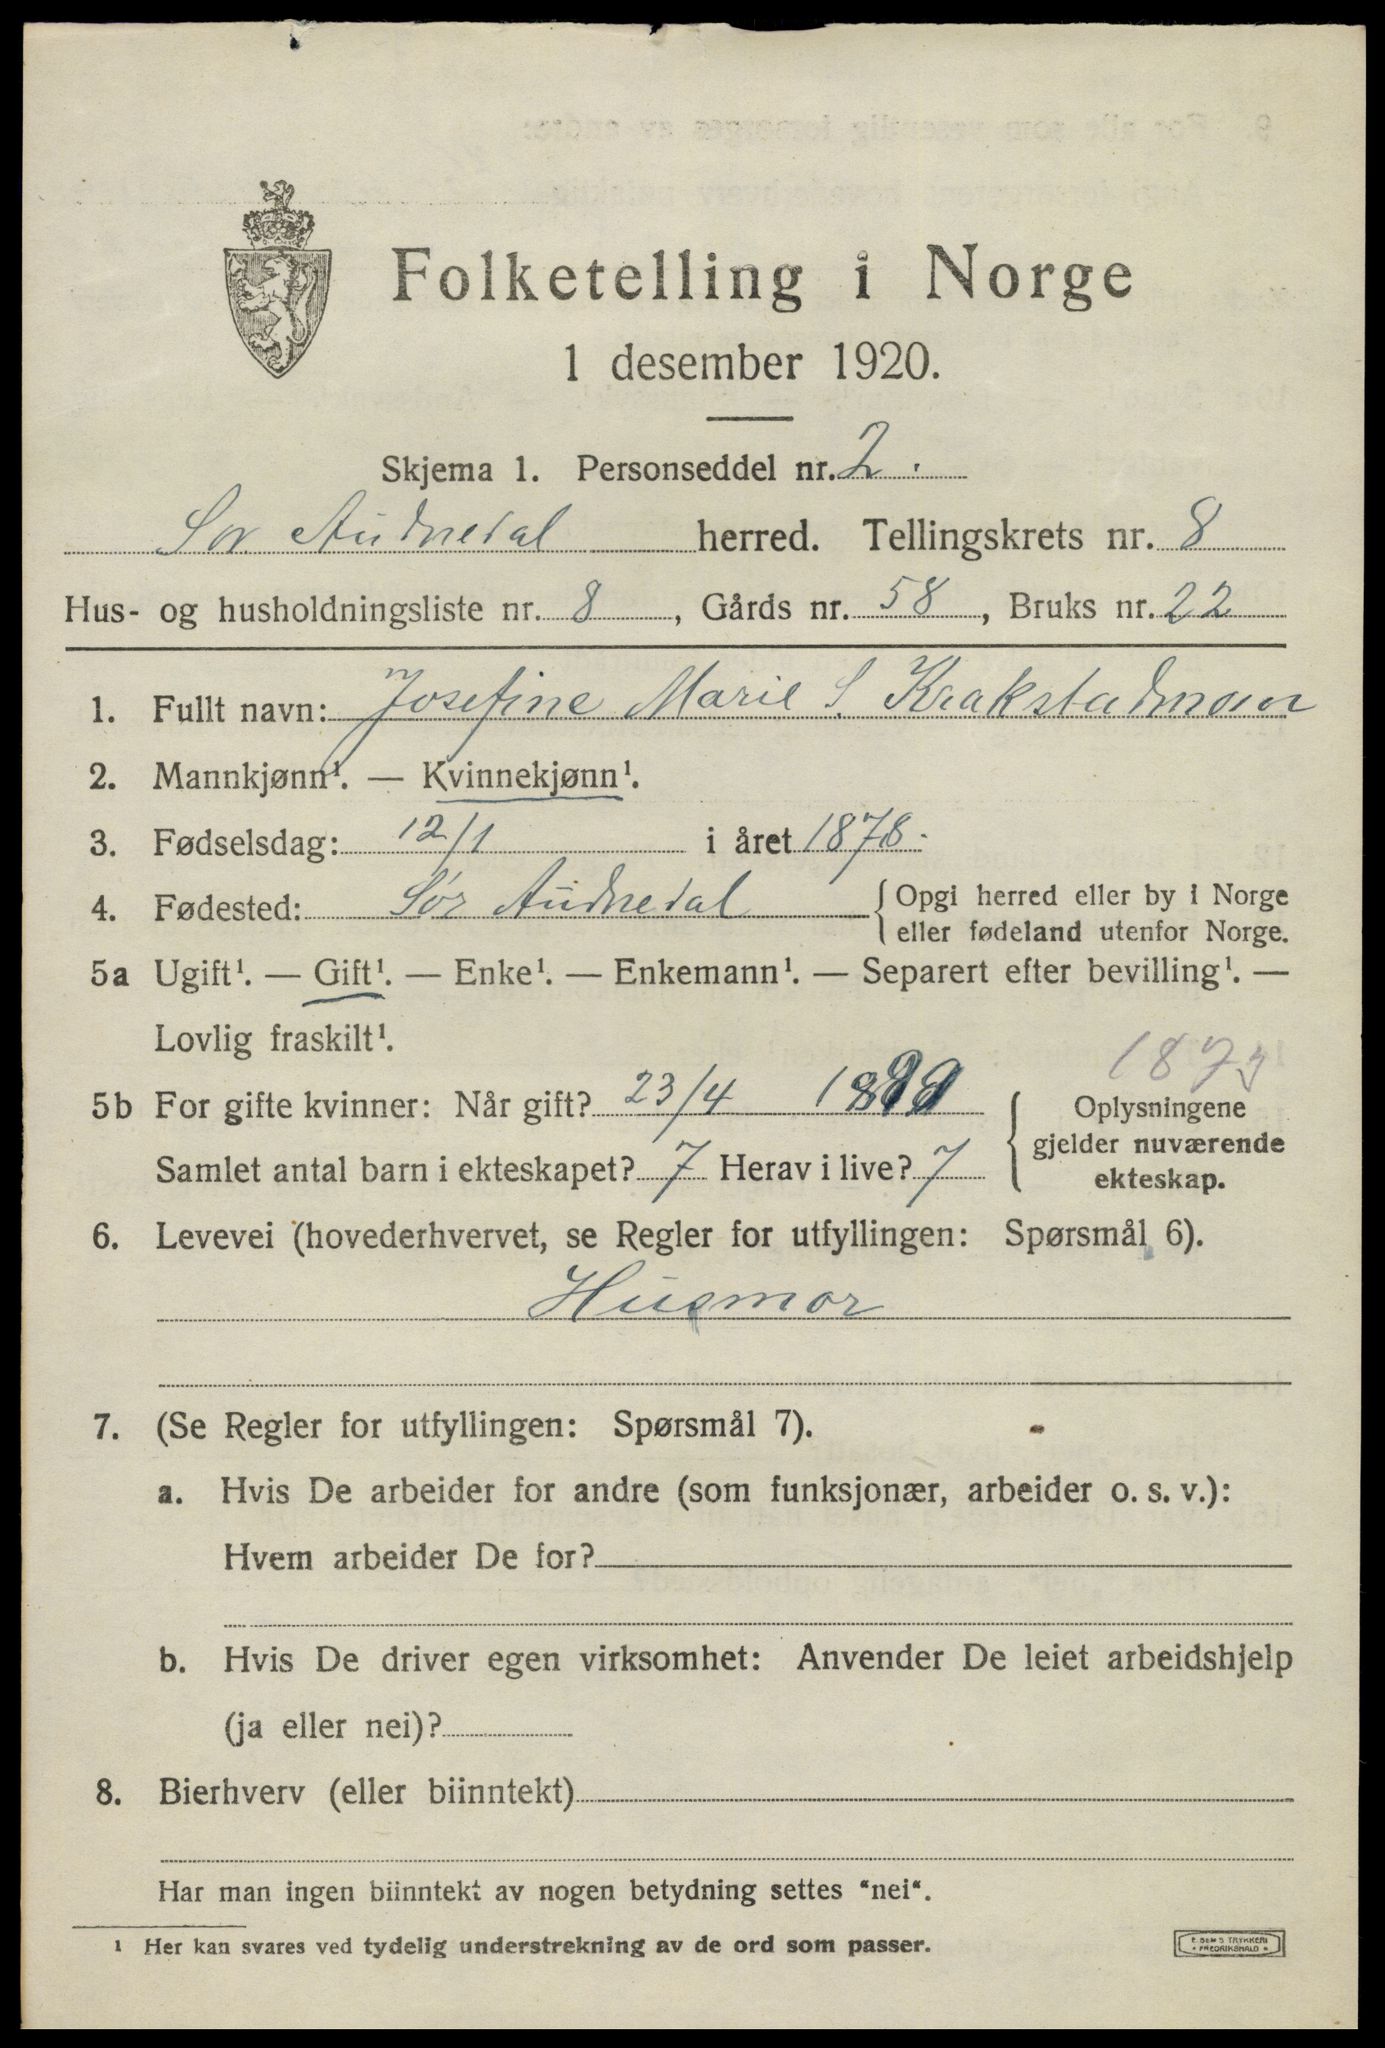 Folketelling i Norge
1 desember 1920.
Skjema 1. Personseddel nr. 2.
Sør Audnedal herred. Tellingskrets nr. 8
Hus- og husholdningsliste nr. 8, Gårds nr. 58, Bruks nr. 22
1. Fullt navn: Josefine Marie S. Krakstadmoen
2. Mannkjønn¹. — Kvinnekjønn¹.
3. Fødselsdag: 12/1 i året 1878.
4. Fødested: Sør Audnedal { Opgi herred eller by i Norge
eller fødeland utenfor Norge.
5a Ugift¹. — Gift¹. — Enke¹. — Enkemann¹. — Separert efter bevilling¹. —
Lovlig fraskilt¹.
5b For gifte kvinner: Når gift? 23/4 1899
Samlet antal barn i ekteskapet? 7 Herav i live? 7
Oplysningene
gjelder nuværende
ekteskap.
6. Levevei (hovederhvervet, se Regler for utfyllingen: Spørsmål 6).
Husmor
7. (Se Regler for utfyllingen: Spørsmål 7).
a. Hvis De arbeider for andre (som funksjonær, arbeider o. s. v.):
Hvem arbeider De for?
b. Hvis De driver egen virksomhet: Anvender De leiet arbeidshjelp
(ja eller nei)?
8. Bierhverv (eller biinntekt)
Har man ingen biinntekt av nogen betydning settes "nei".
¹ Her kan svares ved tydelig understrekning av de ord som passer.
E. SEM'S TRYKKERI
FREDRIKSHALD